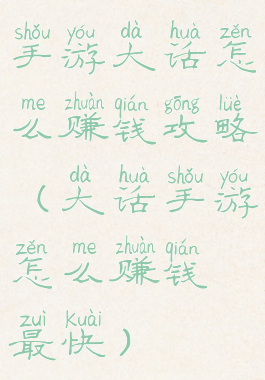 shǒu yóu dà huà zěn
手游大话怎
me zhuàn qián gōng lüè
么赚钱攻略
dà huà shǒu yóu
（大话手游
zěn me zhuàn qián
怎么赚钱
zuì Kuài
最快）